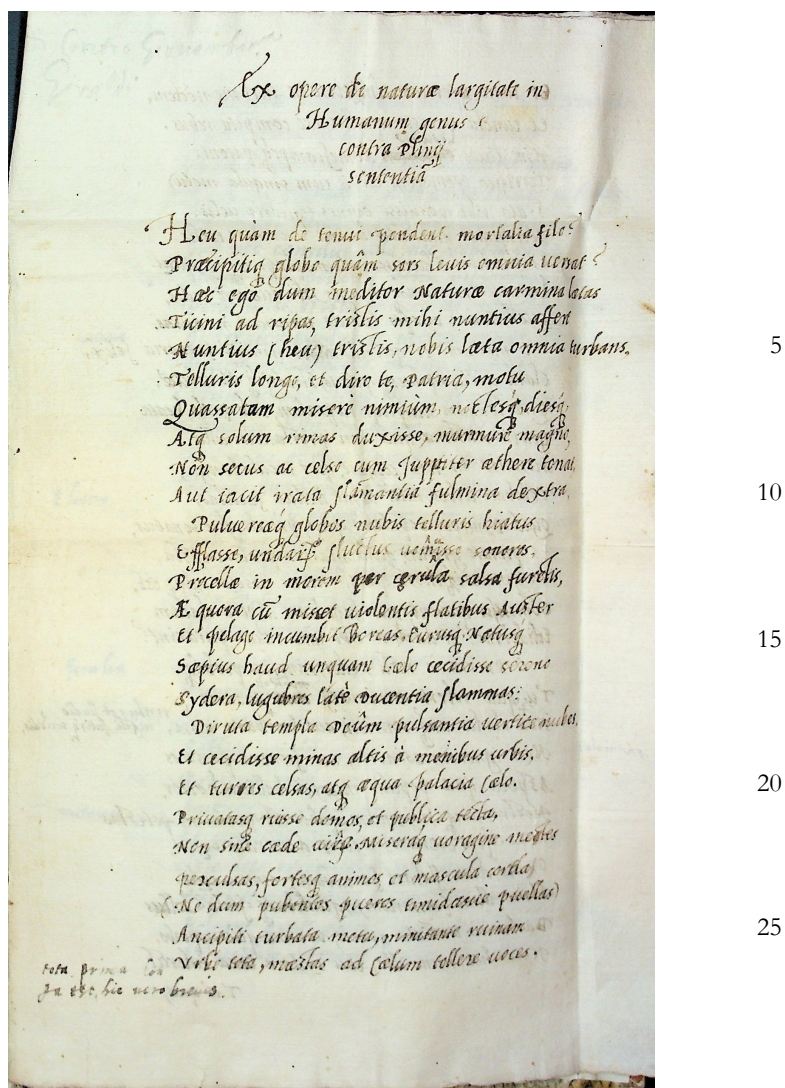 Ex opere de naturæ largitate in
Humanum genus
contra Plinij
sententiā
Heu quàm de tenui pendent mortalia filo?
Præcipitiq́ globo quâm sors leuis omnia uersat?
Hæc ego dum meditor Naturæ carmina lætas
Ticini ad ripas, tristis mihi nuntius affert
Nuntius (heu) tristis, nobis læta omnia turbans, 5
Telluris longe, et diro te, Patria, motu
Quassatam miserè nimiùm, noctesq́, diesq́,
Atq́ solum rimas duxisse, murmure magno,
Non secus ac celso cum Juppiter æthere tonat,
Aut iacit irata flamantia fulmina dextra, 10
Puluereaq́ globos nubis telluris hiatus
Efflasse, undarū fluctus uomisse sonoros,
Procellæ in morem per cęrula salsa furetis,
Æquora cū miscet uiolentis flatibus Auster
Et pelago incumbit Boreas, Eurusq́ Notusq́ 15
Sæpius haud unquam Cælo cecidisse sereno
Sydera, lugubres latè ducentia flammas:
Diruta templa Deûm pulsantia uertice nubes,
Et cecidisse minas altis à menibus urbis,
Et turres celsas, atq́ æqua palacia Cælo. 20
Priuatasq́ ruisse domos, et publica tecta,
Non sine cæde uirū. Miseraq́ uoragine mentes
perculsas, fortesq́ animos et mascula corda,
Ne dum pubentes pueros timidasue puellas
Ancipiti turbata metu, minitante ruinam 25
Vrbe tota, mæstas ad Cælum tollere uoces.
tota prima
est, hic uero breuis.